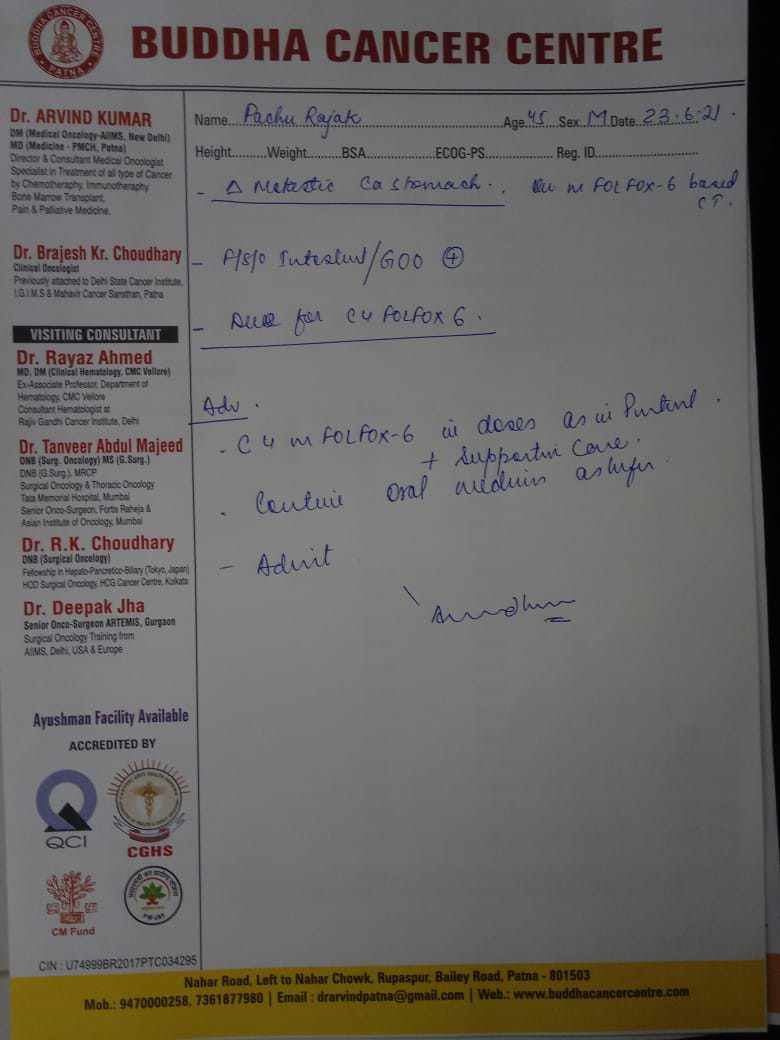 BUDDHA CANCER CENTRE
PATNA
BUDDHA CANCER CENTRE
Dr. ARVIND KUMAR
DM (Medical Oncology-AIIMS, New Delhi)
MD (Medicine - PMCH, Patna)
Director & Consultant Medical Oncologist
Specialist in Treatment of all type of Cancer
by Chemotheraphy, Immunotheraphy
Bone Marrow Transplant,
Pain & Palliative Medicine.
Dr. Brajesh Kr. Choudhary
Clinical Oncologist
Previously attached to Delhi State Cancer Institute,
I.G.I.M.S & Mahavir Cancer Sansthan, Patna
VISITING CONSULTANT
Dr. Rayaz Ahmed
MD, DM (Clinical Hematology, CMC Vellore)
Ex-Associate Professor, Department of
Hematology, CMC Vellore
Consultant Hematologist at
Rajiv Gandhi Cancer Institute, Delhi
Dr. Tanveer Abdul Majeed
DNB (Surg. Oncology) MS (G.Surg.)
DNB (G.Surg.), MRCP
Surgical Oncology & Thoracic Oncology
Tata Memorial Hospital, Mumbai
Senior Onco-Surgeon, Fortis Raheja &
Asian Institute of Oncology, Mumbai
Dr. R.K. Choudhary
DNB (Surgical Oncology)
Fellowship in Hepato-Pancretico-Biliary (Tokyo, Japan)
HOD Surgical Oncology, HCG Cancer Centre, Kolkata
Dr. Deepak Jha
Senior Onco-Surgeon ARTEMIS, Gurgaon
Surgical Oncology Training from
AIIMS, Delhi, USA & Europe
Ayushman Facility Available
ACCREDITED BY
QCI
CGHS
CM Fund
PM-JAY
CIN : U74999BR2017PTC034295
Name... Pachu Rajak Age 45 Sex M Date 23.6.21.
Height......... Weight........ BSA............... ECOG-PS................ Reg. ID.........................
- Δ Metastic Ca stomach. m FOLFOX-6 based
CT.
- F/S/O /GOO +
- Due for C4 FOLFOX 6.
Adv.
- C4 m FOLFOX-6 in doses as in
+ Supportive Care.
- Continue Oral
- Admit
Nahar Road, Left to Nahar Chowk, Rupaspur, Bailey Road, Patna - 801503
Mob.: 9470000258, 7361877980 | Email : drarvindpatna@gmail.com | Web.: www.buddhacancercentre.com